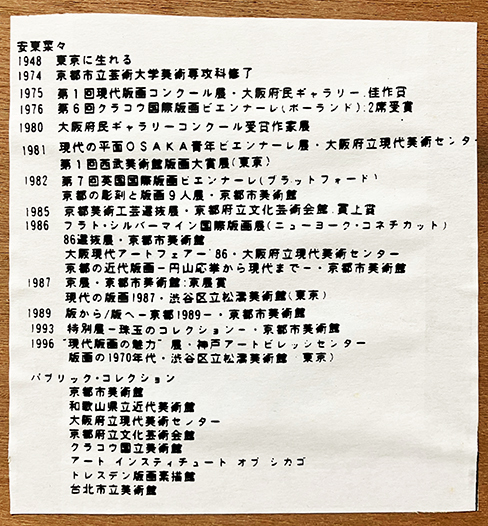 安東菜々
1948 東京に生れる
1974 京都市立芸術大学美術専攻科修了
1975 第1回現代版画コンクール展・大阪府民ギャラリー.佳作賞
1976 第6回クラコウ国際版画ビエンナーレ(ポーランド):2席受賞
1980 大阪府民ギャラリーコンクール受賞作家展
1981 現代の平面OSAKA青年ビエンナーレ展・大阪府立現代美術センター
第1回西武美術館版画大賞展(東京)
1982 第7回英国国際版画ビエンナーレ(ブラットフォード)
京都の彫刻と版画9人展・京都市美術館
1985 京都美術工芸選抜展・京都府立文化芸術会館.買上賞
1986 プラト・シルバーマイン国際版画展(ニューヨーク・コネチカット)
86選抜展・京都市美術館
大阪現代アートフェアー'86・大阪府立現代美術センター
京都の近代版画-円山応挙から現代まで-・京都市美術館
1987 京展・京都市美術館:京展賞
現代の版画1987・渋谷区立松濤美術館(東京)
1989 版から/版へ-京都1989-・京都市美術館
1993 特別展-珠玉のコレクション-・京都市美術館
1996 "現代版画の魅力"展・神戸アートビレッジセンター
版画の1970年代・渋谷区立松濤美術館 東京)
パブリック・コレクション
京都市美術館
和歌山県立近代美術館
大阪府立現代美術センター
京都府立文化芸術会館
クラコウ国立美術館
アート インスティチュート オブ シカゴ
ドレスデン版画素描館
台北市立美術館